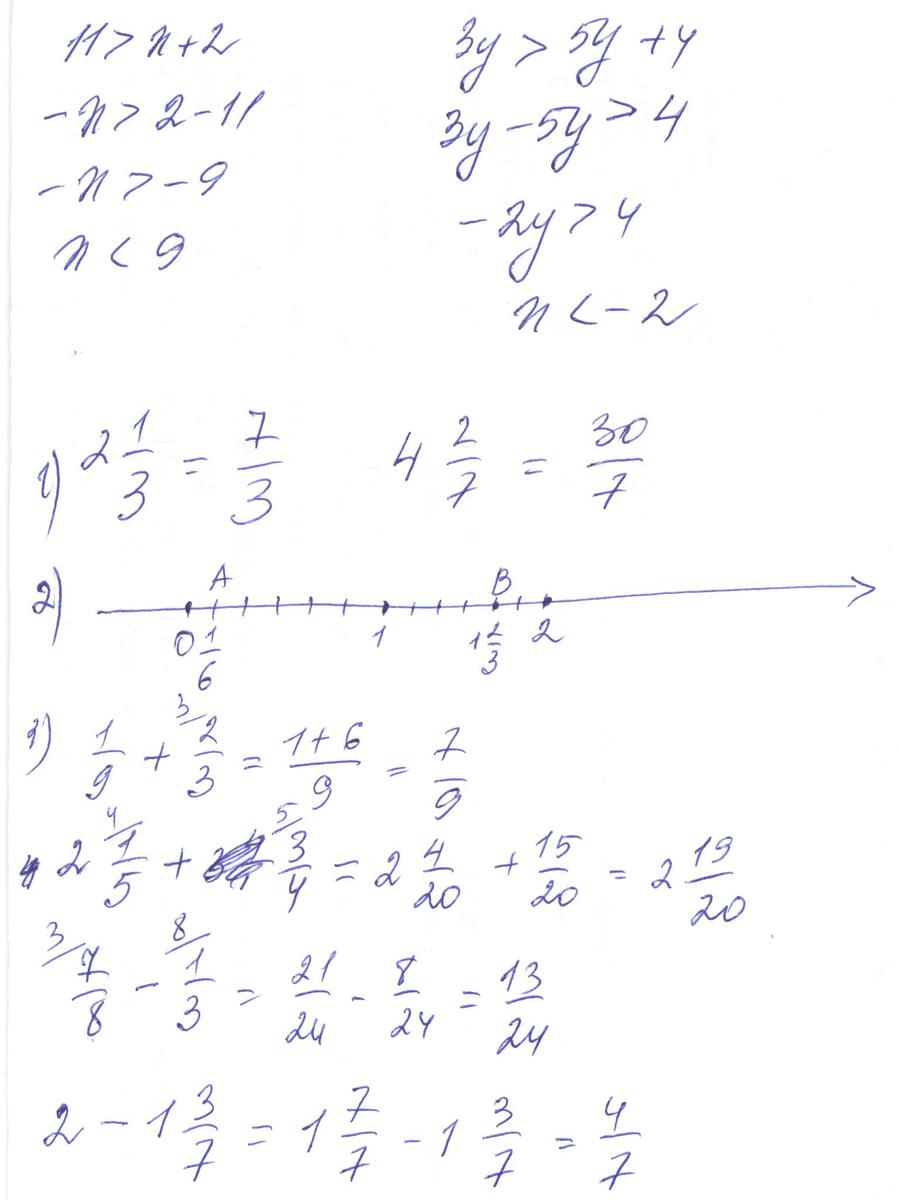 11 > x + 2
-x > 2 - 11
-x > -9
x < 9
3y > 5y + 4
3y - 5y > 4
-2y > 4
x < -2
1) 2 1/3 = 7/3 4 2/7 = 30/7
2) A B
0 1/6 1 1 2/3 2
3) 1/9 + 3/ 2/3 = (1+6)/9 = 7/9
2 4/ 1/5 + 5/ 3/4 = 2 4/20 + 15/20 = 2 19/20
3/ 7/8 - 8/ 1/3 = 21/24 - 8/24 = 13/24
2 - 1 3/7 = 1 7/7 - 1 3/7 = 4/7